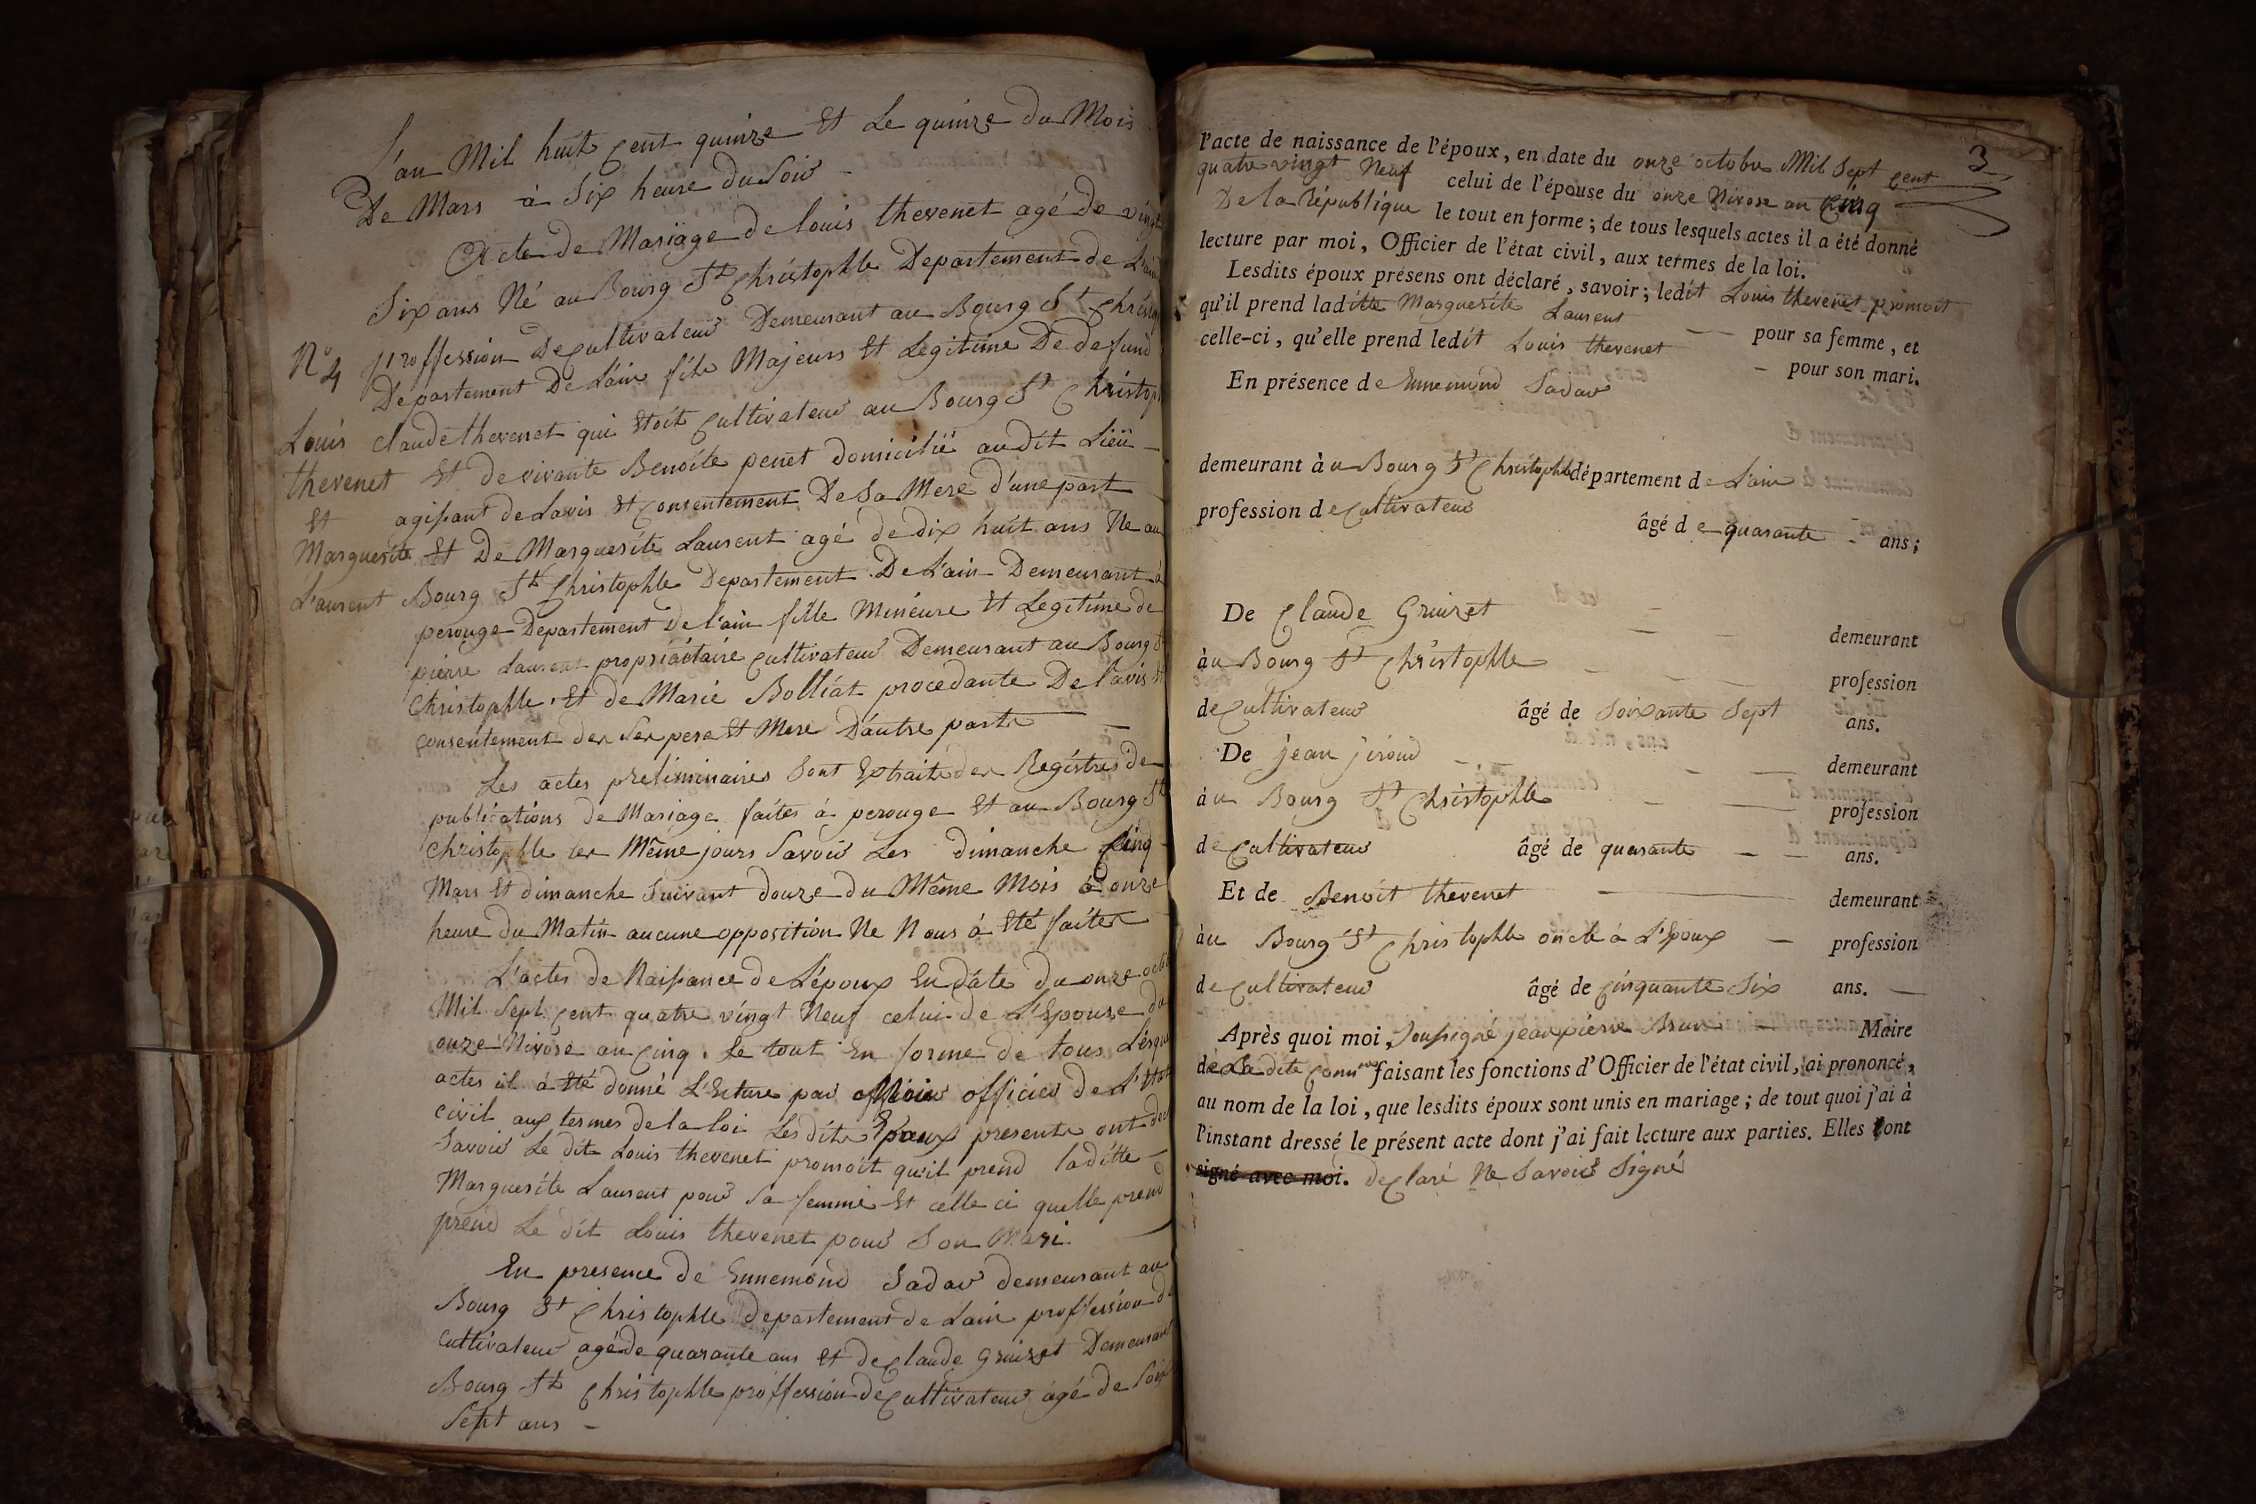 L'an Mil huit cent quinze Et Le quinze du Mois
De Mars à Six heure du Soir
Acte de Mariage de louis thevenet agé de vingt
Six ans Né au Bourg St Christophle Departement de L'ain
proffession De cultivateur Demeurant au Bourg St Christop
Departement De L'ain fils Majeurs Et Legitime De defund
Claude thevenet qui Etoit cultivateur au Bourg St Christop
Et de vivante Benoite penet domicilié audit Lieü
agissant de Lavis Et consentement De Sa Mere d'une part
Et De Marguerite Laurent agé de dix huit ans Ne au
Bourg St Christophle Departement De L'ain Demeurant à
perouge Departement De l'ain fille Mineure Et Legitime de
pierre Laurent propriaitaire cultivateur Demeurant au Bourg St
Christophle Et de Marie Bolliat procedante De l'avis Et
consentement des Ses pere Et Mere D'autre parts
N° 4
Louis
thevenet
Et
Marguerite
L'aurent
Les actes preliminaires Sont Extraits des Registres de
publications de Mariage faites à perouge Et au Bourg St
Christophle les Même jours Savoir Les dimanche Cinq
Mars Et dimanche Suivant douze du Même Mois à onze
heure du Matin aucune opposition Ne Nous à Eté faites
L'actes de Naissance de L'époux En date du onze octob
Mil Sept cent quatre vingt Neuf celui de L'Epouse du
onze Nivose an cinq. Le tout En forme de tous Lesque
actes il à Eté donné L'Ecture par officier de L'Etat
civil aux termes de la loi Les dits Epoux presents ont dec
Savoir Le dit Louis thevenet promoit qu'il prend laditte
Marguerite Laurent pour Sa femme Et celle ci quelle prend
prend Le dit Louis thevenet pour Son Mari
En presence de Ennemond Sadar demeurant au
Bourg St Christophle departement de Lain proffession de
cultivateur agé de quarante ans Et de Claude Gruizet Demeurant
Bourg St Christophle proffession de cultivateur agé de Soix
Sept ans
3
l'acte de naissance de l'époux, en date du onze octobre Mil Sept cent
quatre vingt Neuf celui de l'épouse du onze Nivose an Cinq
De la République le tout en forme ; de tous lesquels actes il a été donné
lecture par moi, Officier de l'état civil, aux termes de la loi.
Lesdits époux présens ont déclaré, savoir ; ledit Louis thevenet promoit
qu'il prend laditte Marguerite Laurent pour sa femme, et
celle-ci, qu'elle prend ledit Louis thevenet pour son mari.
En présence de Ennemond Sadar
demeurant àu Bourg St Christophle département de Lain
profession de cultivateur âgé de quarante ans ;
De Claude Gruizet demeurant
àu Bourg St Christophle profession
de cultivateur âgé de Soixante Sept ans.
De jean jiroud demeurant
àu Bourg St Christophle profession
de cultivateur âgé de quarante ans.
Et de Benoit thevenet demeurant
àu Bourg St Christophle oncle à L'Epoux profession
de cultivateur âgé de cinquante Six ans.
Après quoi moi, Soussigné jean pierre Brun Maire
de La dite Commune faisant les fonctions d'Officier de l'état civil, ai prononcé,
au nom de la loi, que lesdits époux sont unis en mariage ; de tout quoi j'ai à
l'instant dressé le présent acte dont j'ai fait lecture aux parties. Elles ont
signé avec moi. declaré Ne Savoir Signé